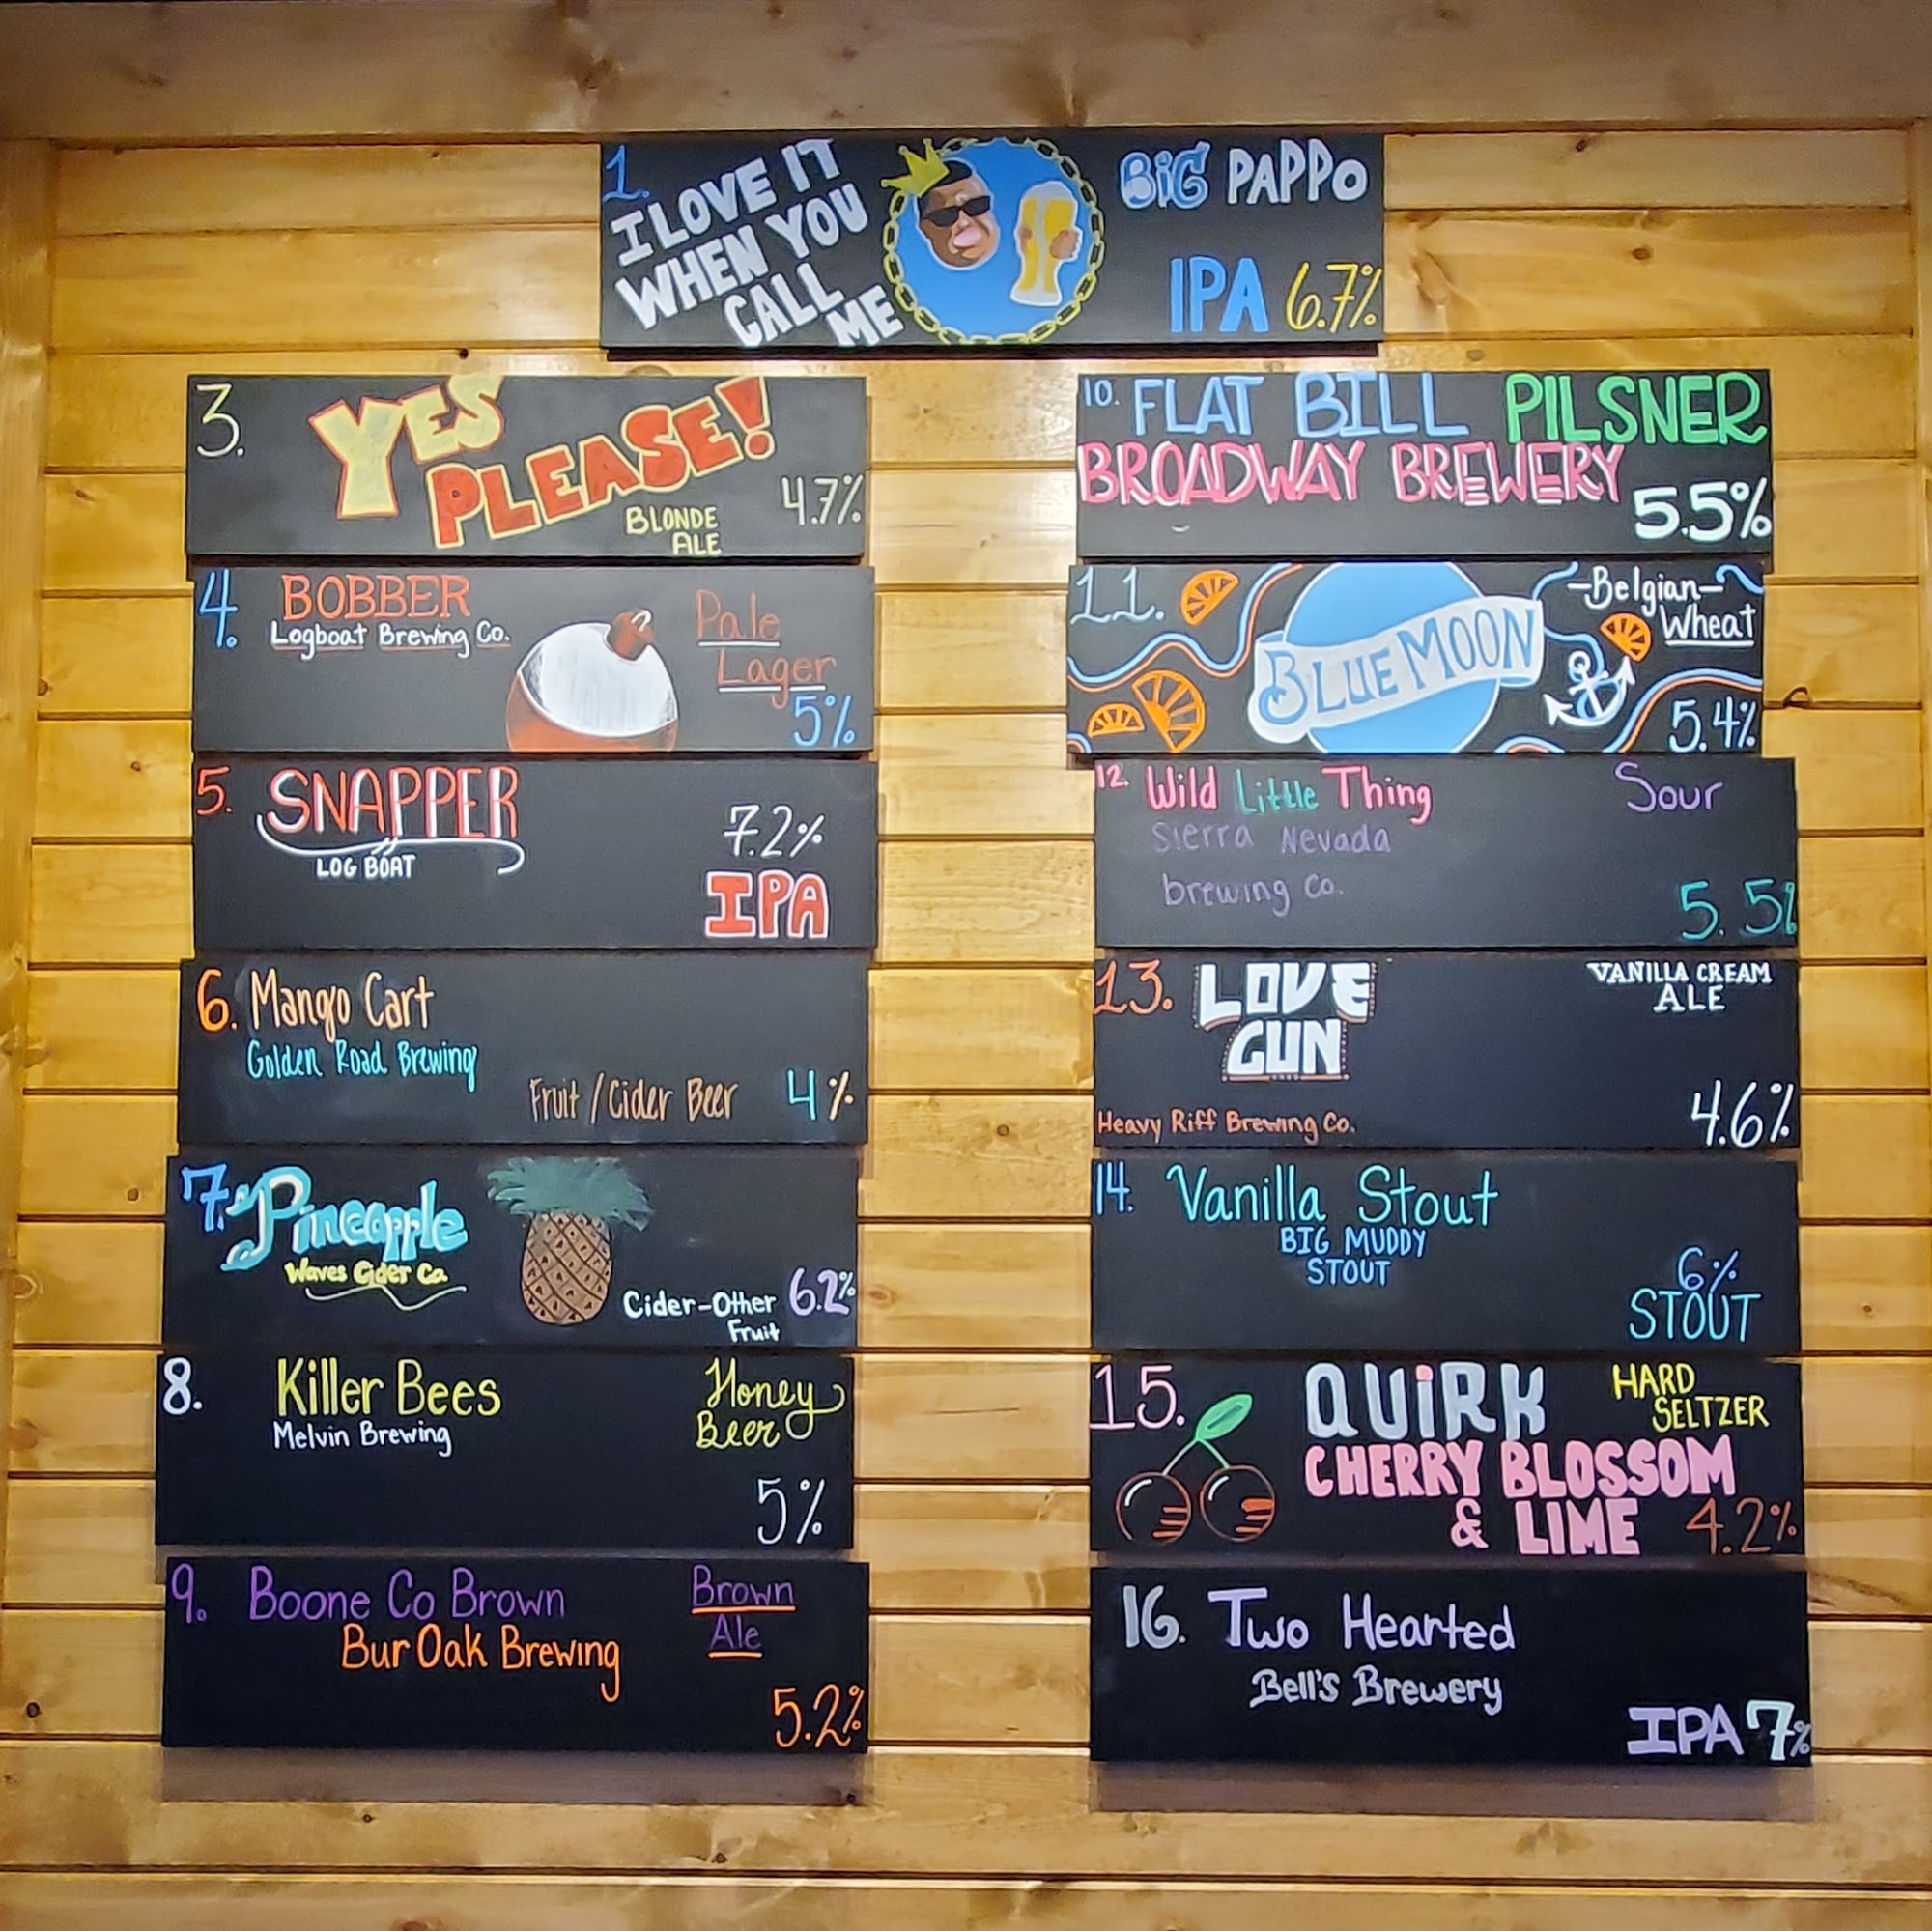 1.
I LOVE IT
WHEN YOU
CALL
ME
BiG PAPPO
IPA 6.7%
3.
YES
PLEASE!
BLONDE
ALE
4.7%
4.
BOBBER
Logboat Brewing Co.
Pale
Lager
5%
5.
SNAPPER
LOG BOAT
7.2%
IPA
6. Mango Cart
Golden Road Brewing
Fruit / Cider Beer 4%
7. Pineapple
Waves Cider Co.
Cider-Other
Fruit
6.2%
8. Killer Bees
Melvin Brewing
Honey
Beer
5%
9. Boone Co Brown
Bur Oak Brewing
Brown
Ale
5.2%
10. FLAT BILL PILSNER
BROADWAY BREWERY
5.5%
11.
BLUE MOON
-Belgian-
Wheat
5.4%
12. Wild Little Thing
Sierra Nevada
brewing Co.
Sour
5.5%
13. LOVE
GUN
Heavy Riff Brewing Co.
VANILLA CREAM
ALE
4.6%
14. Vanilla Stout
BIG MUDDY
STOUT
6%
STOUT
15.
QUiRK
CHERRY BLOSSOM
& LIME
HARD
SELTZER
4.2%
16. Two Hearted
Bell's Brewery
IPA 7%